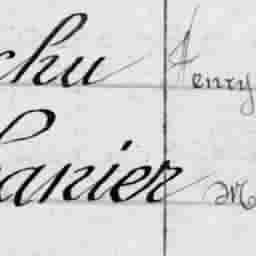 chu Henry
hanier M